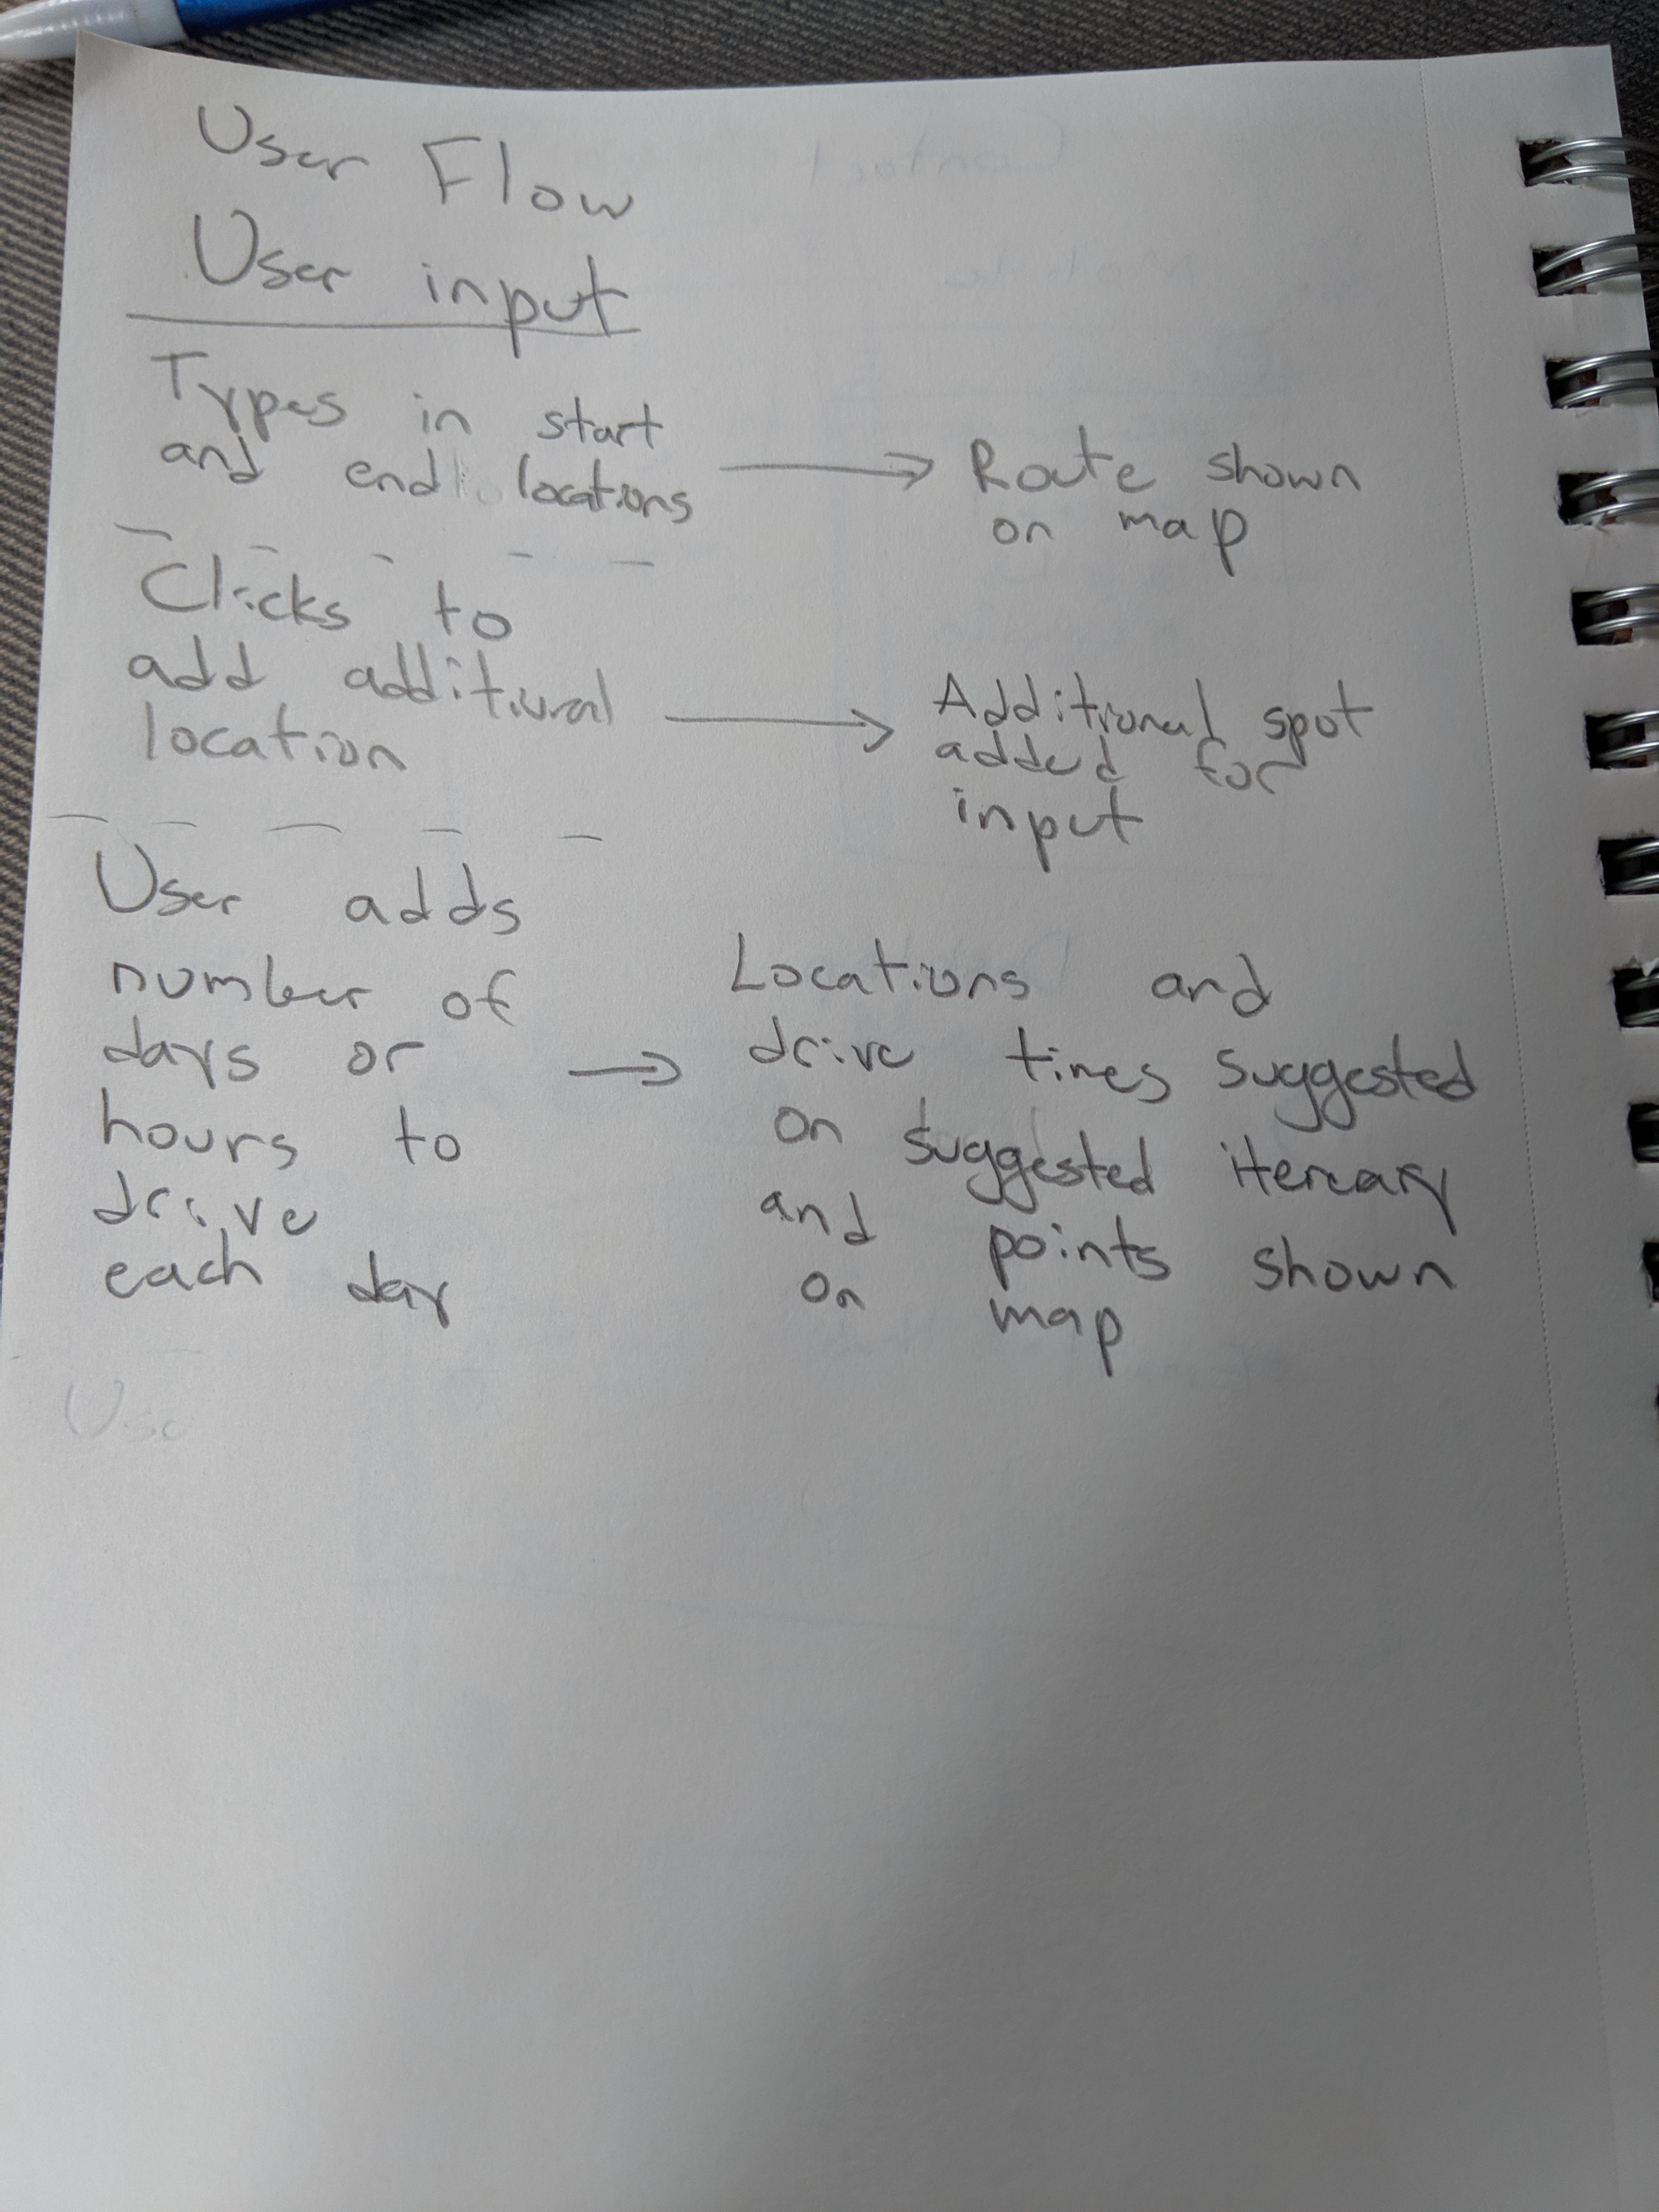 User Flow
User input
Types in start
and end locations
→ Route shown
on map
Clicks to
add additional
location
→ Additional spot
added for
input
User adds
number of
days or
hours to
drive
each day
→ Locations and
drive times suggested
on suggested itereary
and points shown
on map